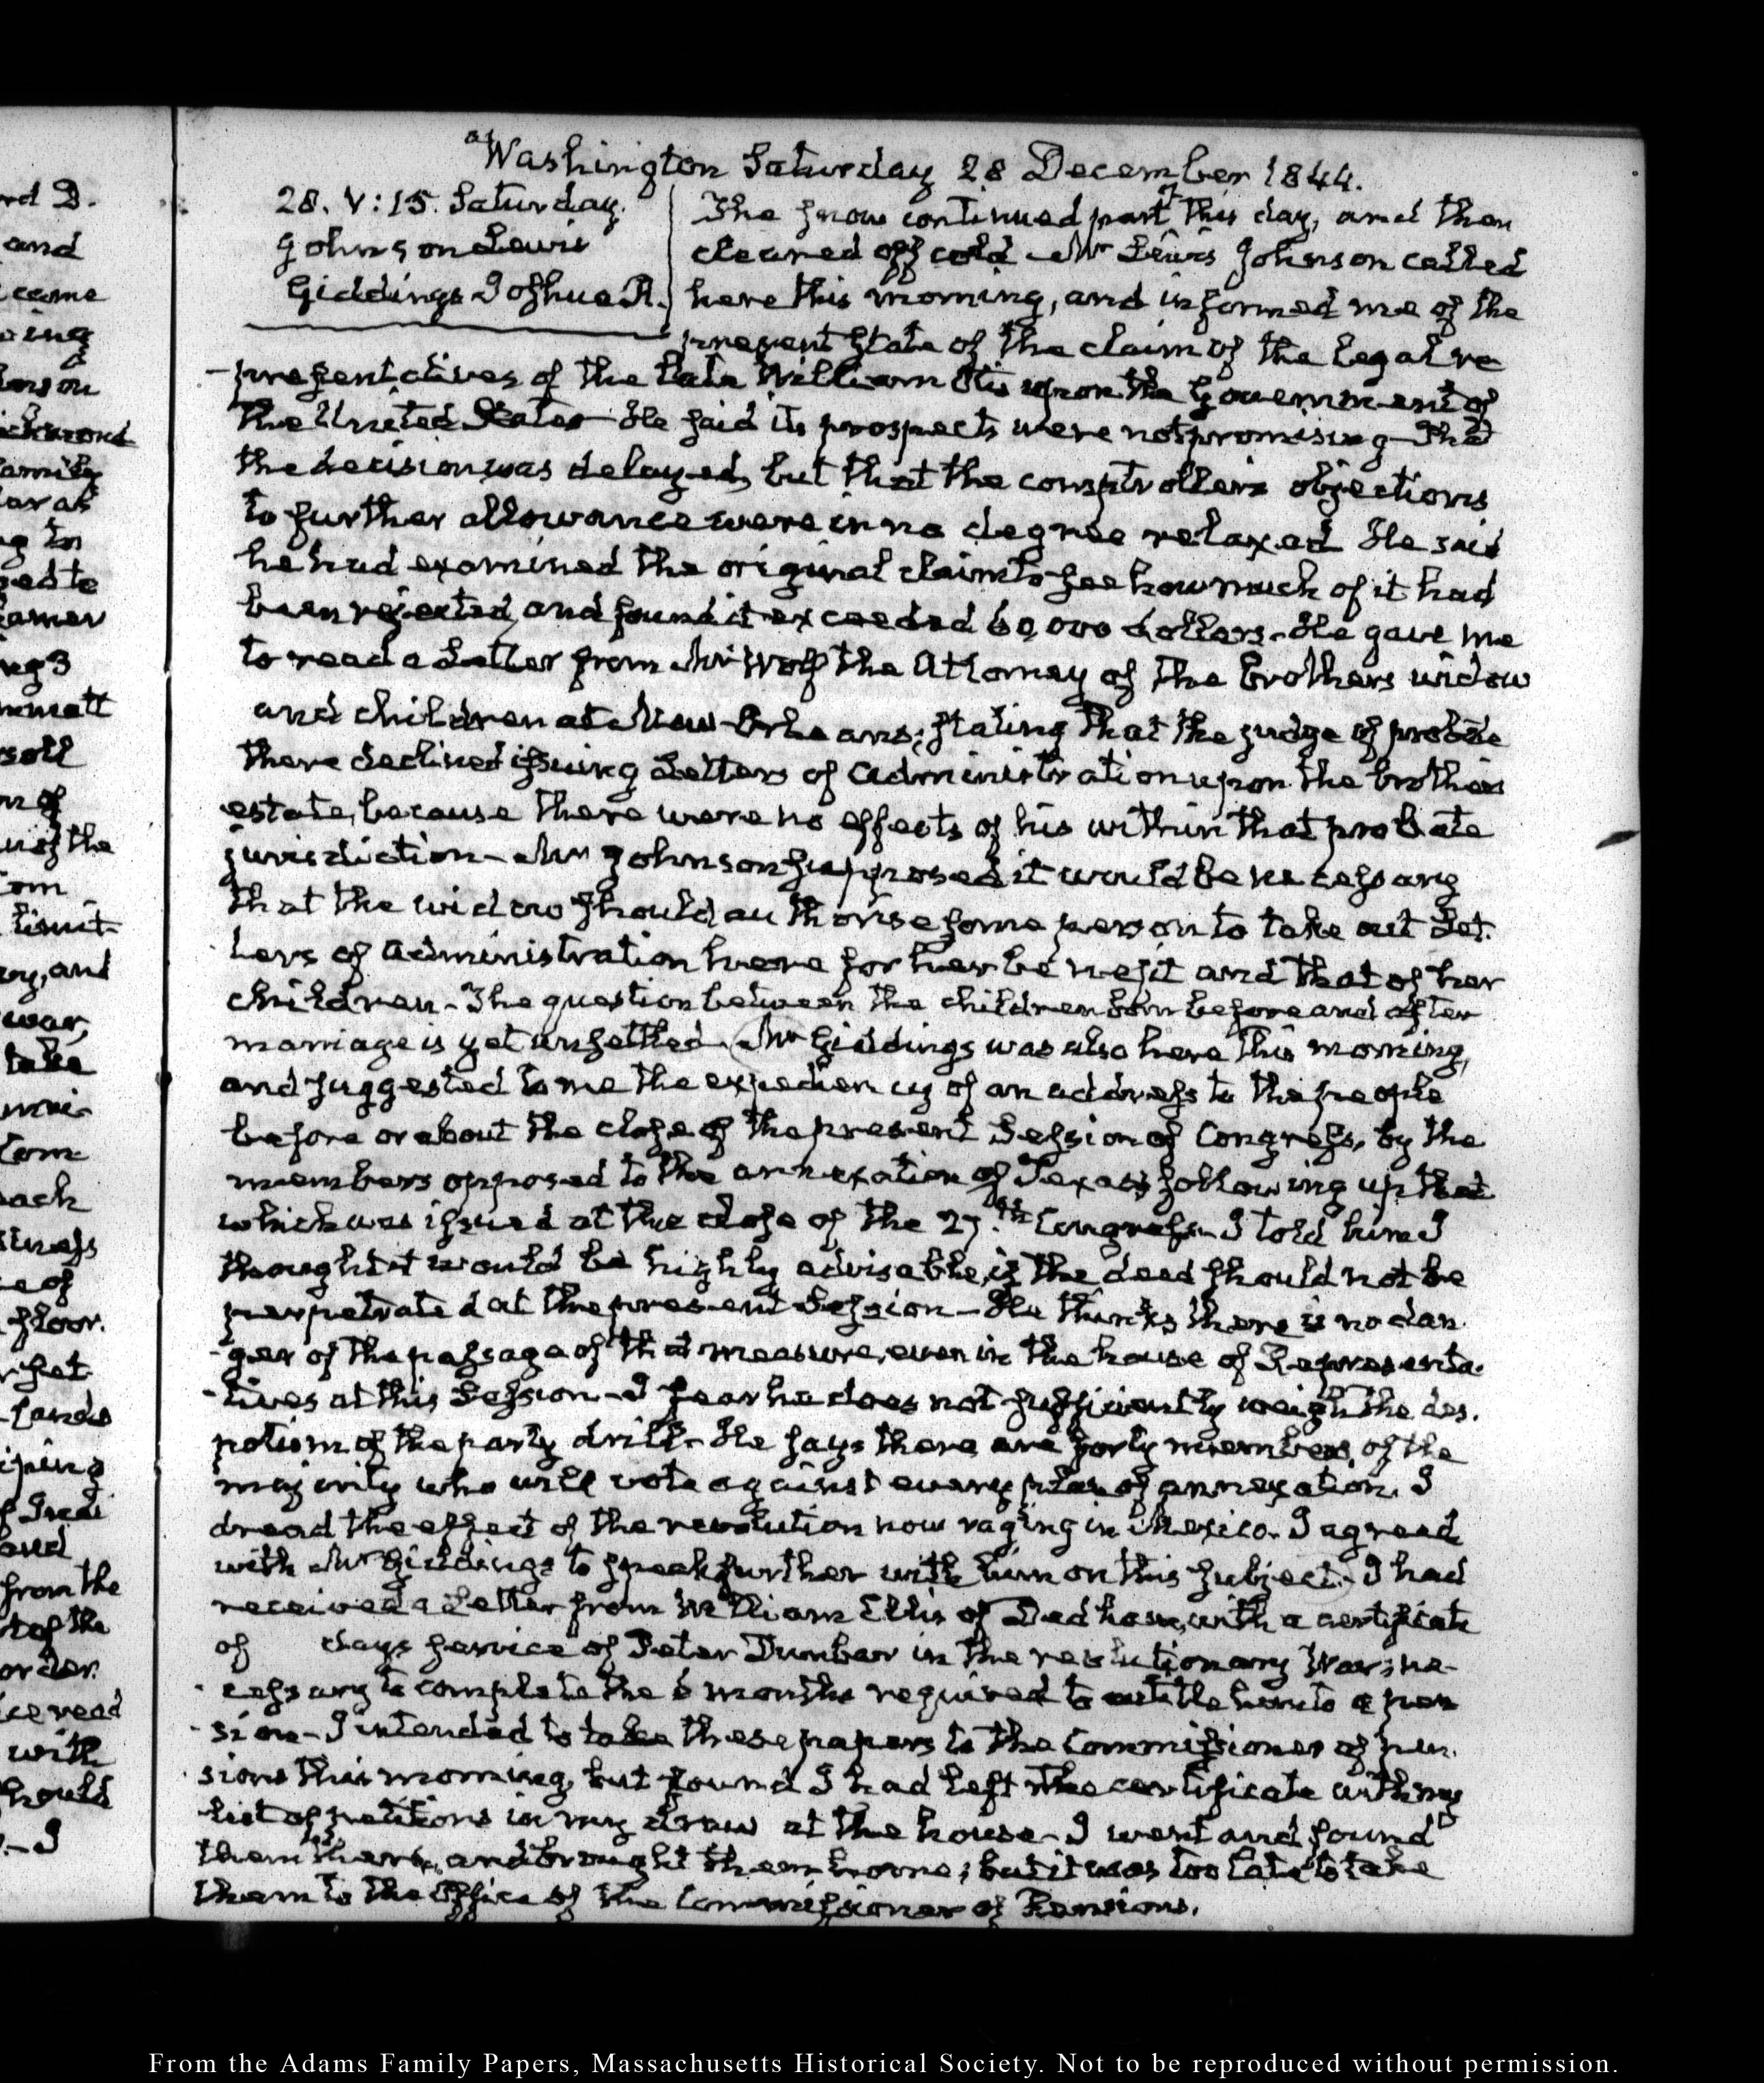 Washington Saturday 28 December 1844.
28. V:15. Saturday.
Johnson Lewis
Giddings Joshua R.
The snow continued part of this day, and then
cleared off cold. Mr Lewis Johnson called
here this morning, and informed me of the
present State of the claim of the legal re
-presentatives of the late William Otis upon the Government of
the United States. He said its prospects were not promising—That
the decision was delayed, but that the comptrollers objections
to further allowance were in no degree relaxed. He said
he had examined the original claim to see how much of it had
been rejected, and found it exceeded 60,000 dollars. He gave me
to read a Letter from Mr Wolf the Attorney of the Brothers widow
and children at New-Orleans; stating that the judge of probate
there declined issuing Letters of administration upon the brothers
estate, because there were no effects of his within that probate
jurisdiction—Mr Johnson supposed it would be necessary
that the widow should authorise some person to take out Let-
ters of administration here for her benefit and that of her
children—The question between the children born before and after
marriage is yet unsettled. Mr Giddings was also here this morning,
and suggested to me the expediency of an address to the people
before or about the close of the present Session of Congress, by the
members opposed to the annexation of Texas, following up that
which was issued at the close of the 27th Congress—I told him I
thought it would be highly advisable, if the deed should not be
perpetrated at the present Session—He thinks there is no dan-
-ger of the passage of that measure, even in the house of Representa-
-tives at this Session—I fear he does not sufficiently weigh the des-
potism of the party drill—He says there are forty members, of the
majority who will vote against every plan of annexation. I
dread the effect of the revolution now raging in Mexico. I agreed
with Mr Giddings to speak further with him on this subject—I had
received a Letter from William Ellis of Dedham, with a certificate
of days service of Peter Dunbar in the revolutionary War; ne-
-cessary to complete the 6 months required to entitle him to a pen
-sion—I intended to take these papers to the Commissioner of pen-
sions this morning, but found I had left the certificate with my
list of petitions in my draw at the house—I went and found
them there, and brought them home; but it was too late to take
them to the Office of the Commissioner of Pensions.
From the Adams Family Papers, Massachusetts Historical Society. Not to be reproduced without permission.